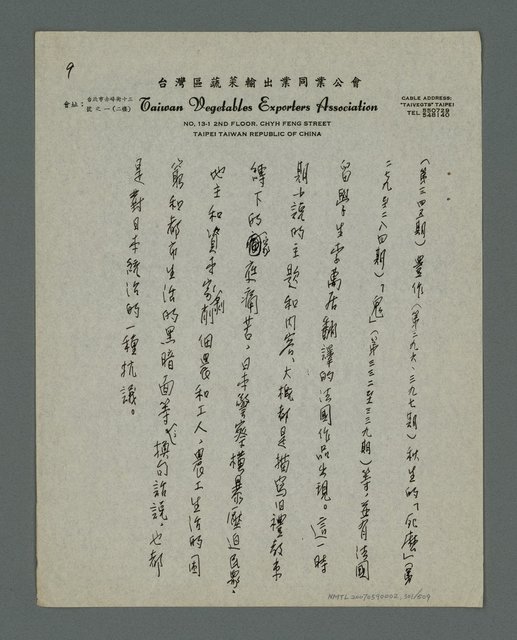 9
台灣區蔬菜輸出業同業公會
會址：台北市赤峰街十三號之一(二樓)
Taiwan Vegetables Exporters Association
CABLE ADDRESS:
"TAIVEGTS" TAIPEI
TEL 550729
548140
NO. 13-1 2ND FLOOR. CHYH FENG STREET
TAIPEI TAIWAN REPUBLIC OF CHINA
（第二四五期）豐作（第三九六、三九七期）秋生的「死麼」（第
二七九至二八四期）「鬼」（第三三二至三三九期）等，並有法國
留學生李萬居翻譯的法國作品出現。這一時
期小說的主題和內容，大概都是描寫旧禮教束
縛下的家庭痛苦、日本警察橫暴壓迫民眾、
地主和資本家剝削佃農和工人、農工生活的困
窮和都市生活的黑暗面等々。換句話說，也都
是對日本統治的一種抗議。
NMTL20070590002, 301/509